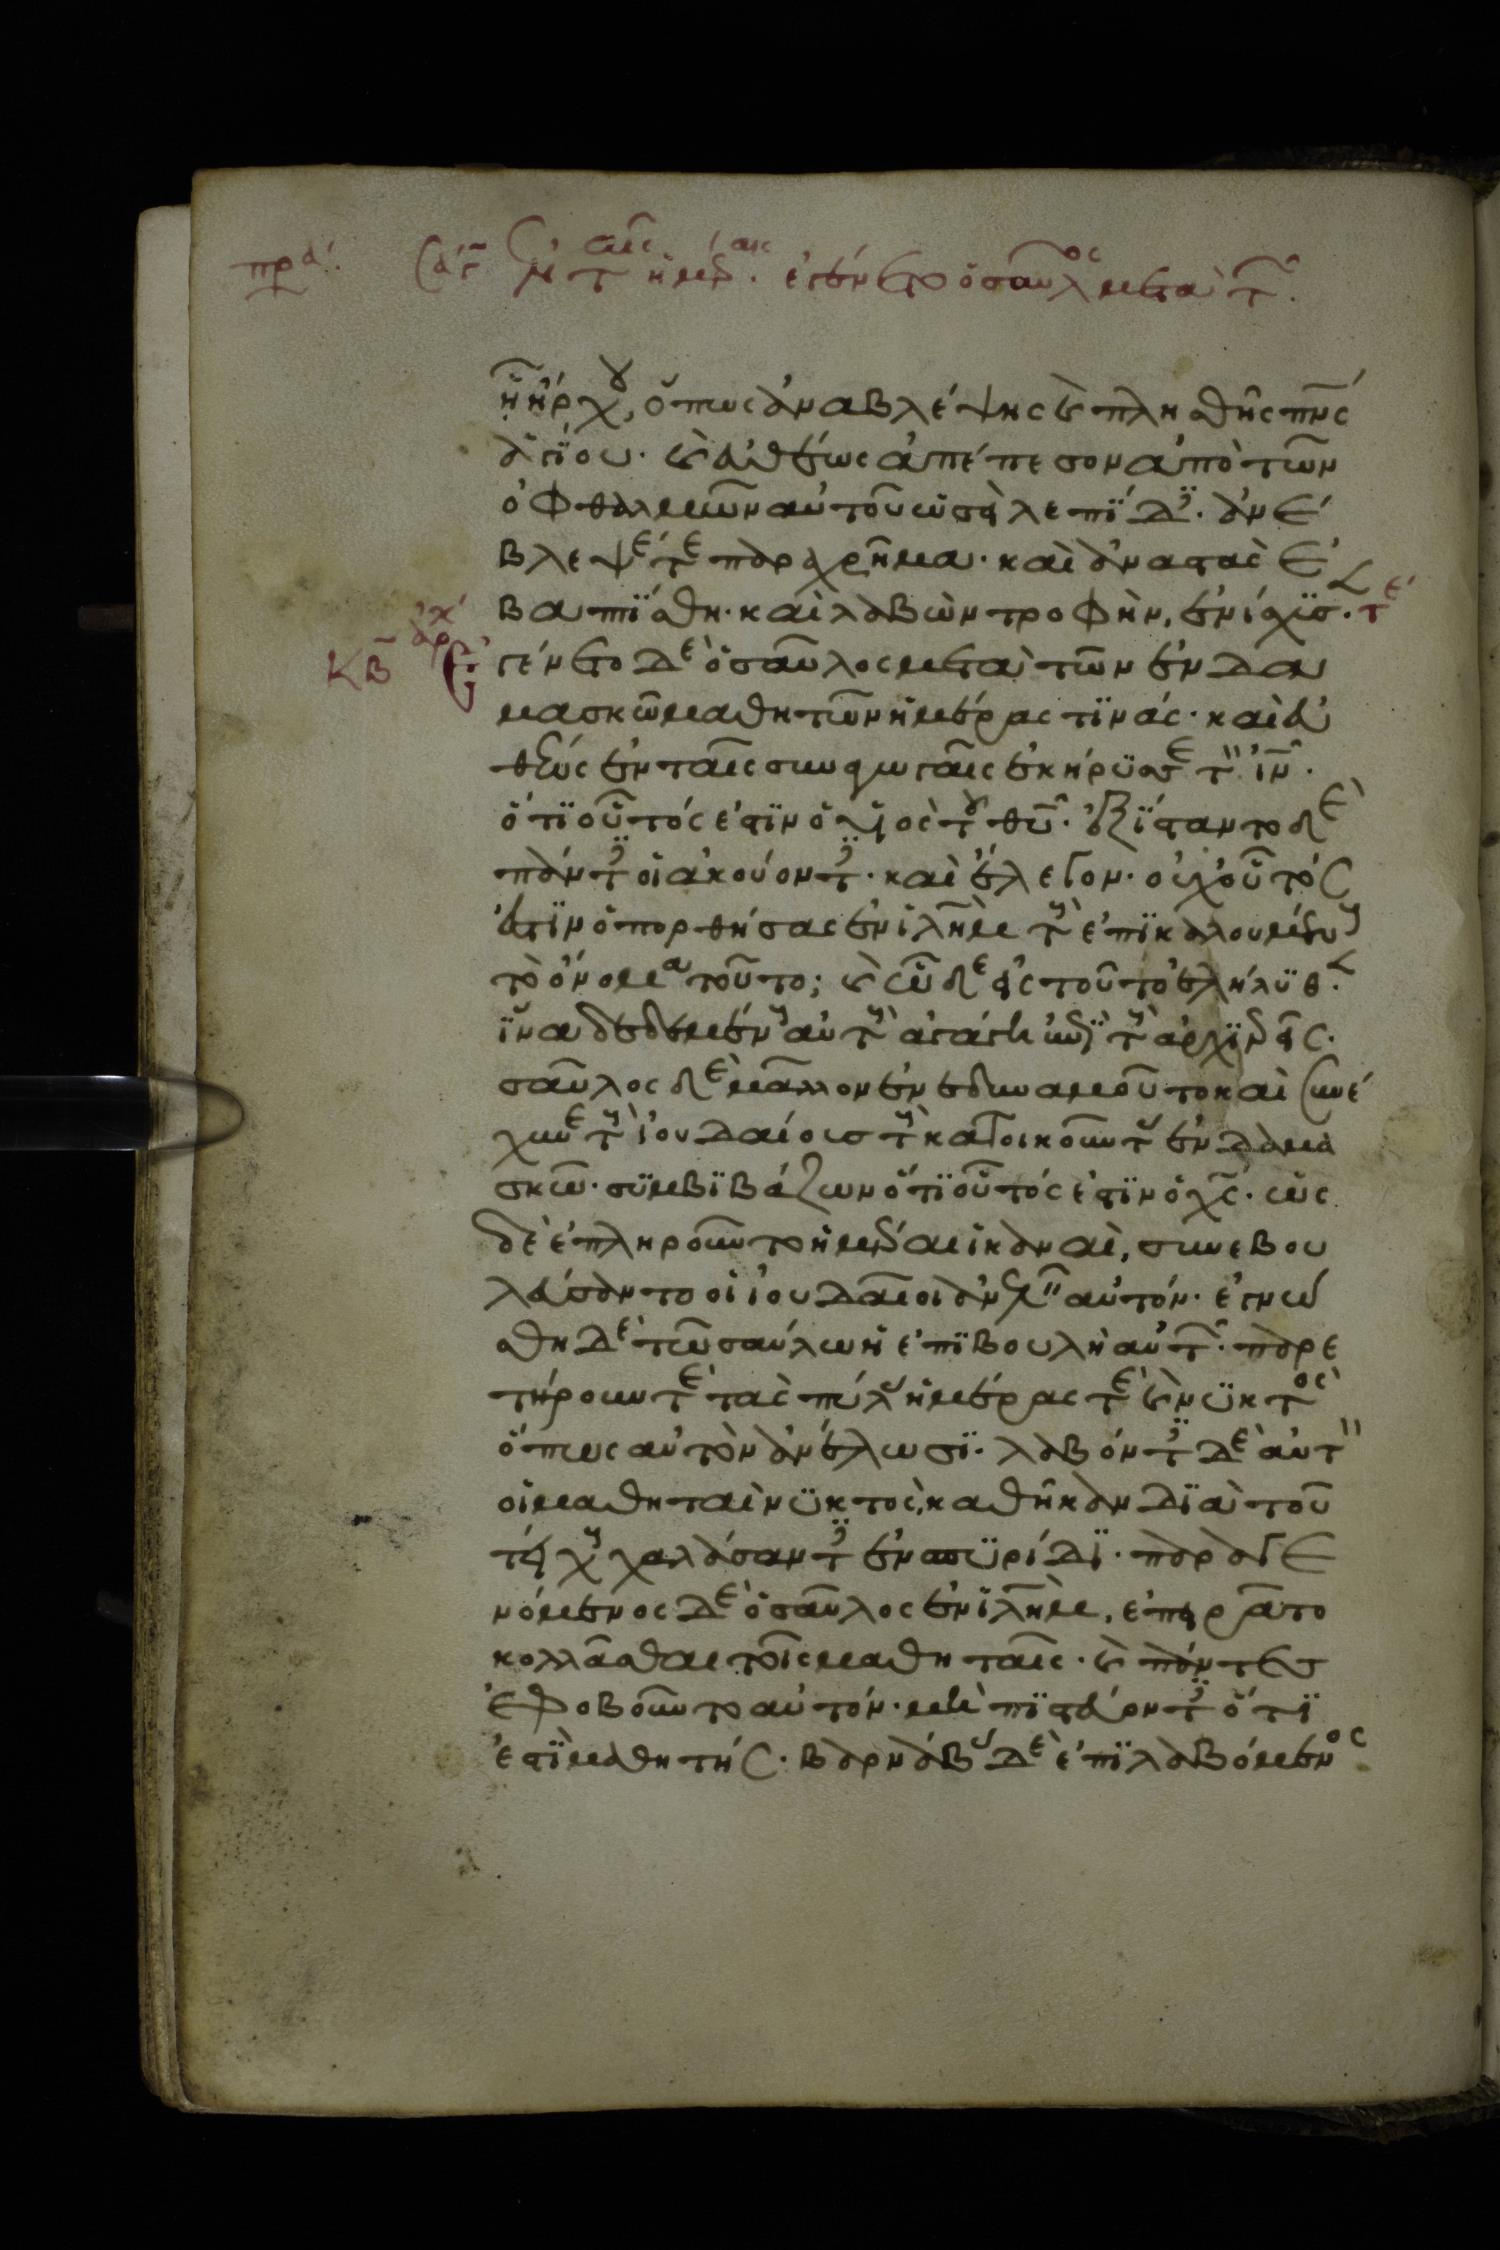 πρα. Σα ς ἐν ταῖς ἡμέραις. ἐγένετο ὁ σαῦλος μετὰ τ
ᾗ ἤρχου, ὅπως ἀναβλέψης καὶ πλησθῆς πνς
ἁγίου. καὶ εὐθέως ἀπέπεσον ἀπὸ τῶν
ὀφθαλμῶν αὐτοῦ ὡσεὶ λεπίδες. ἀνέ
βλεψέ τε παραχρῆμα. καὶ ἀναστὰς ἐ
βαπτίσθη. καὶ λαβὼν τροφὴν, ἐνίσχυσ. τε
κβ ἀρχ Ἐγένετο δὲ ὁ σαῦλος μετὰ τῶν ἐν δα
μασκῶ μαθητῶν ἡμέρας τινάς. καὶ εὐ
θέως ἐν ταῖς συναγωγαῖς ἐκήρυσσε τὸν ιν.
ὅτι οὗτός ἐστιν ὁ υἱὸς τοῦ θυ. ἐξίσταντο δὲ
πάντες οἱ ἀκούοντες. καὶ ἔλεγον. οὐχ οὗτός
ἐστιν ὁ πορθήσας ἐν ιλημ τοὺς ἐπικαλουμένους
τὸ ὄνομα τοῦτο; καὶ ὧδε εἰς τοῦτο ἐλήλυθ.
ἵνα δεδεμένους αὐτοὺς ἀγάγη ἐπὶ τοὺς ἀρχιερεῖς.
σαῦλος δὲ μᾶλλον ἐνεδυναμοῦτο καὶ συνέ
χυνε τοὺς ἰουδαίους τοὺς κατοικοῦντας ἐν δαμα
σκῶ. συμβιβάζων ὅτι οὗτός ἐστιν ὁ χς. ὡς
δὲ ἐπληροῦντο ἡμέραι ἱκαναὶ, συνεβου
λεύσαντο οἱ ἰουδαῖοι ἀνελεῖν αὐτόν. ἐγνώ
σθη δὲ τῶ σαύλω ἡ ἐπιβουλὴ αὐτῶν. παρε
τήρουν τε τὰς πύλας ἡμέρας τε καὶ νυκτὸς
ὅπως αὐτὸν ἀνέλωσι. λαβόντες δὲ αὐτὸν
οἱ μαθηταὶ νυκτὸς, καθῆκαν διὰ τοῦ
τείχους χαλάσαντες ἐν σπυρίδι. παραγε
νόμενος δὲ ὁ σαῦλος ἐν ιλημ, ἐπειρᾶτο
κολλᾶσθαι τοῖς μαθηταῖς. καὶ πάντες
ἐφοβοῦντο αὐτόν. μὴ πιστεύοντες ὅτι
ἐστὶ μαθητής. βαρνάβας δὲ ἐπιλαβόμενος